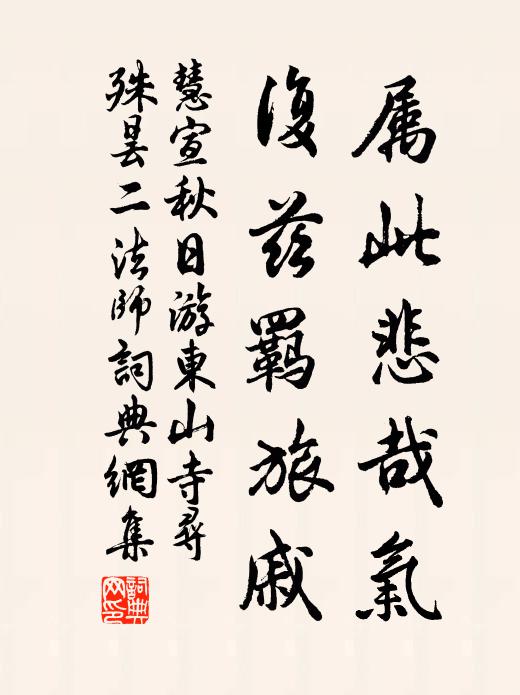 属此悲哉氣
復茲羈旅戚
慧宣秋日游東山寺尋
殊曇二法師詞典網集